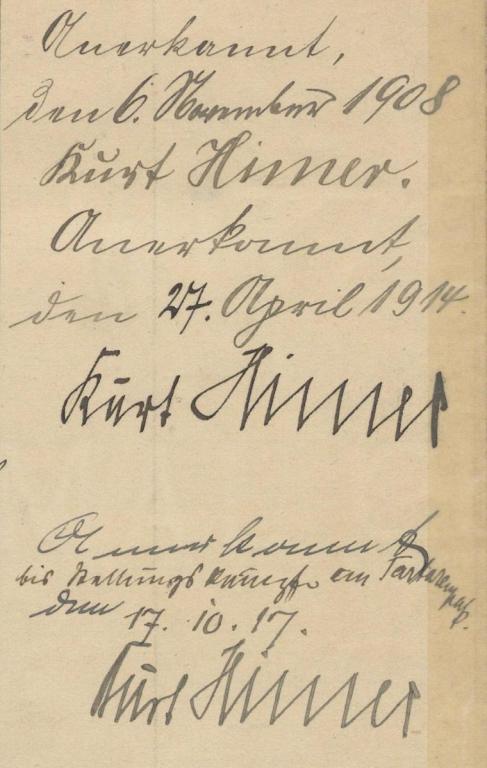 Anerkannt,
den 6. November 1908
Kurt Himer.
Anerkannt,
den 27. April 1914.
Kurt Himer
Anerkannt
bis Stellungskämpfe am Tartarenpaß.
den 17.10.17.
Kurt Himer